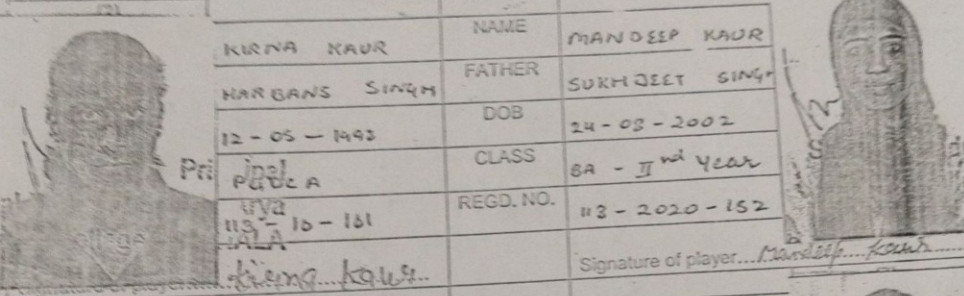 (2)
KIRNA KAUR NAME MANDEEP KAUR
HARBANS SINGH FATHER SUKHJEET SINGH
12-05-1993 DOB 24-03-2002
CLASS BA - IInd Year
REGD. NO. 113-2020-152
10-161
Kirna Kaur Signature of player... Mandeep Kaur